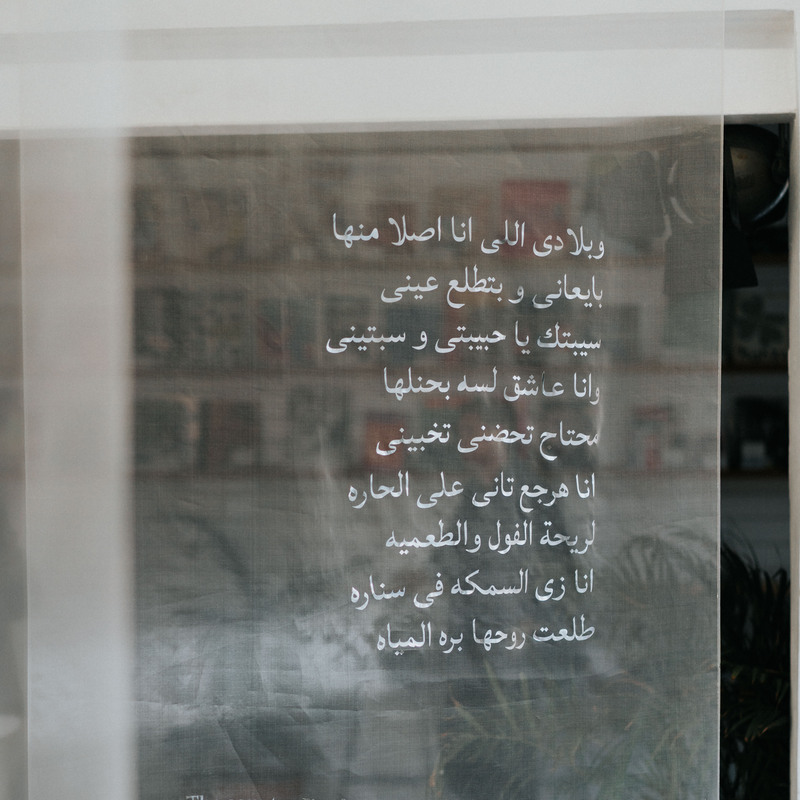 وبلادى اللى انا اصلا منها
بايعانى و بتطلع عينى
سيبتك يا حبيبتى و سبتينى
وانا عاشق لسه بحنلها
محتاج تحضنى تخبينى
انا هرجع تانى على الحاره
لريحة الفول والطعميه
انا زى السمكه فى سناره
طلعت روحها بره المياه